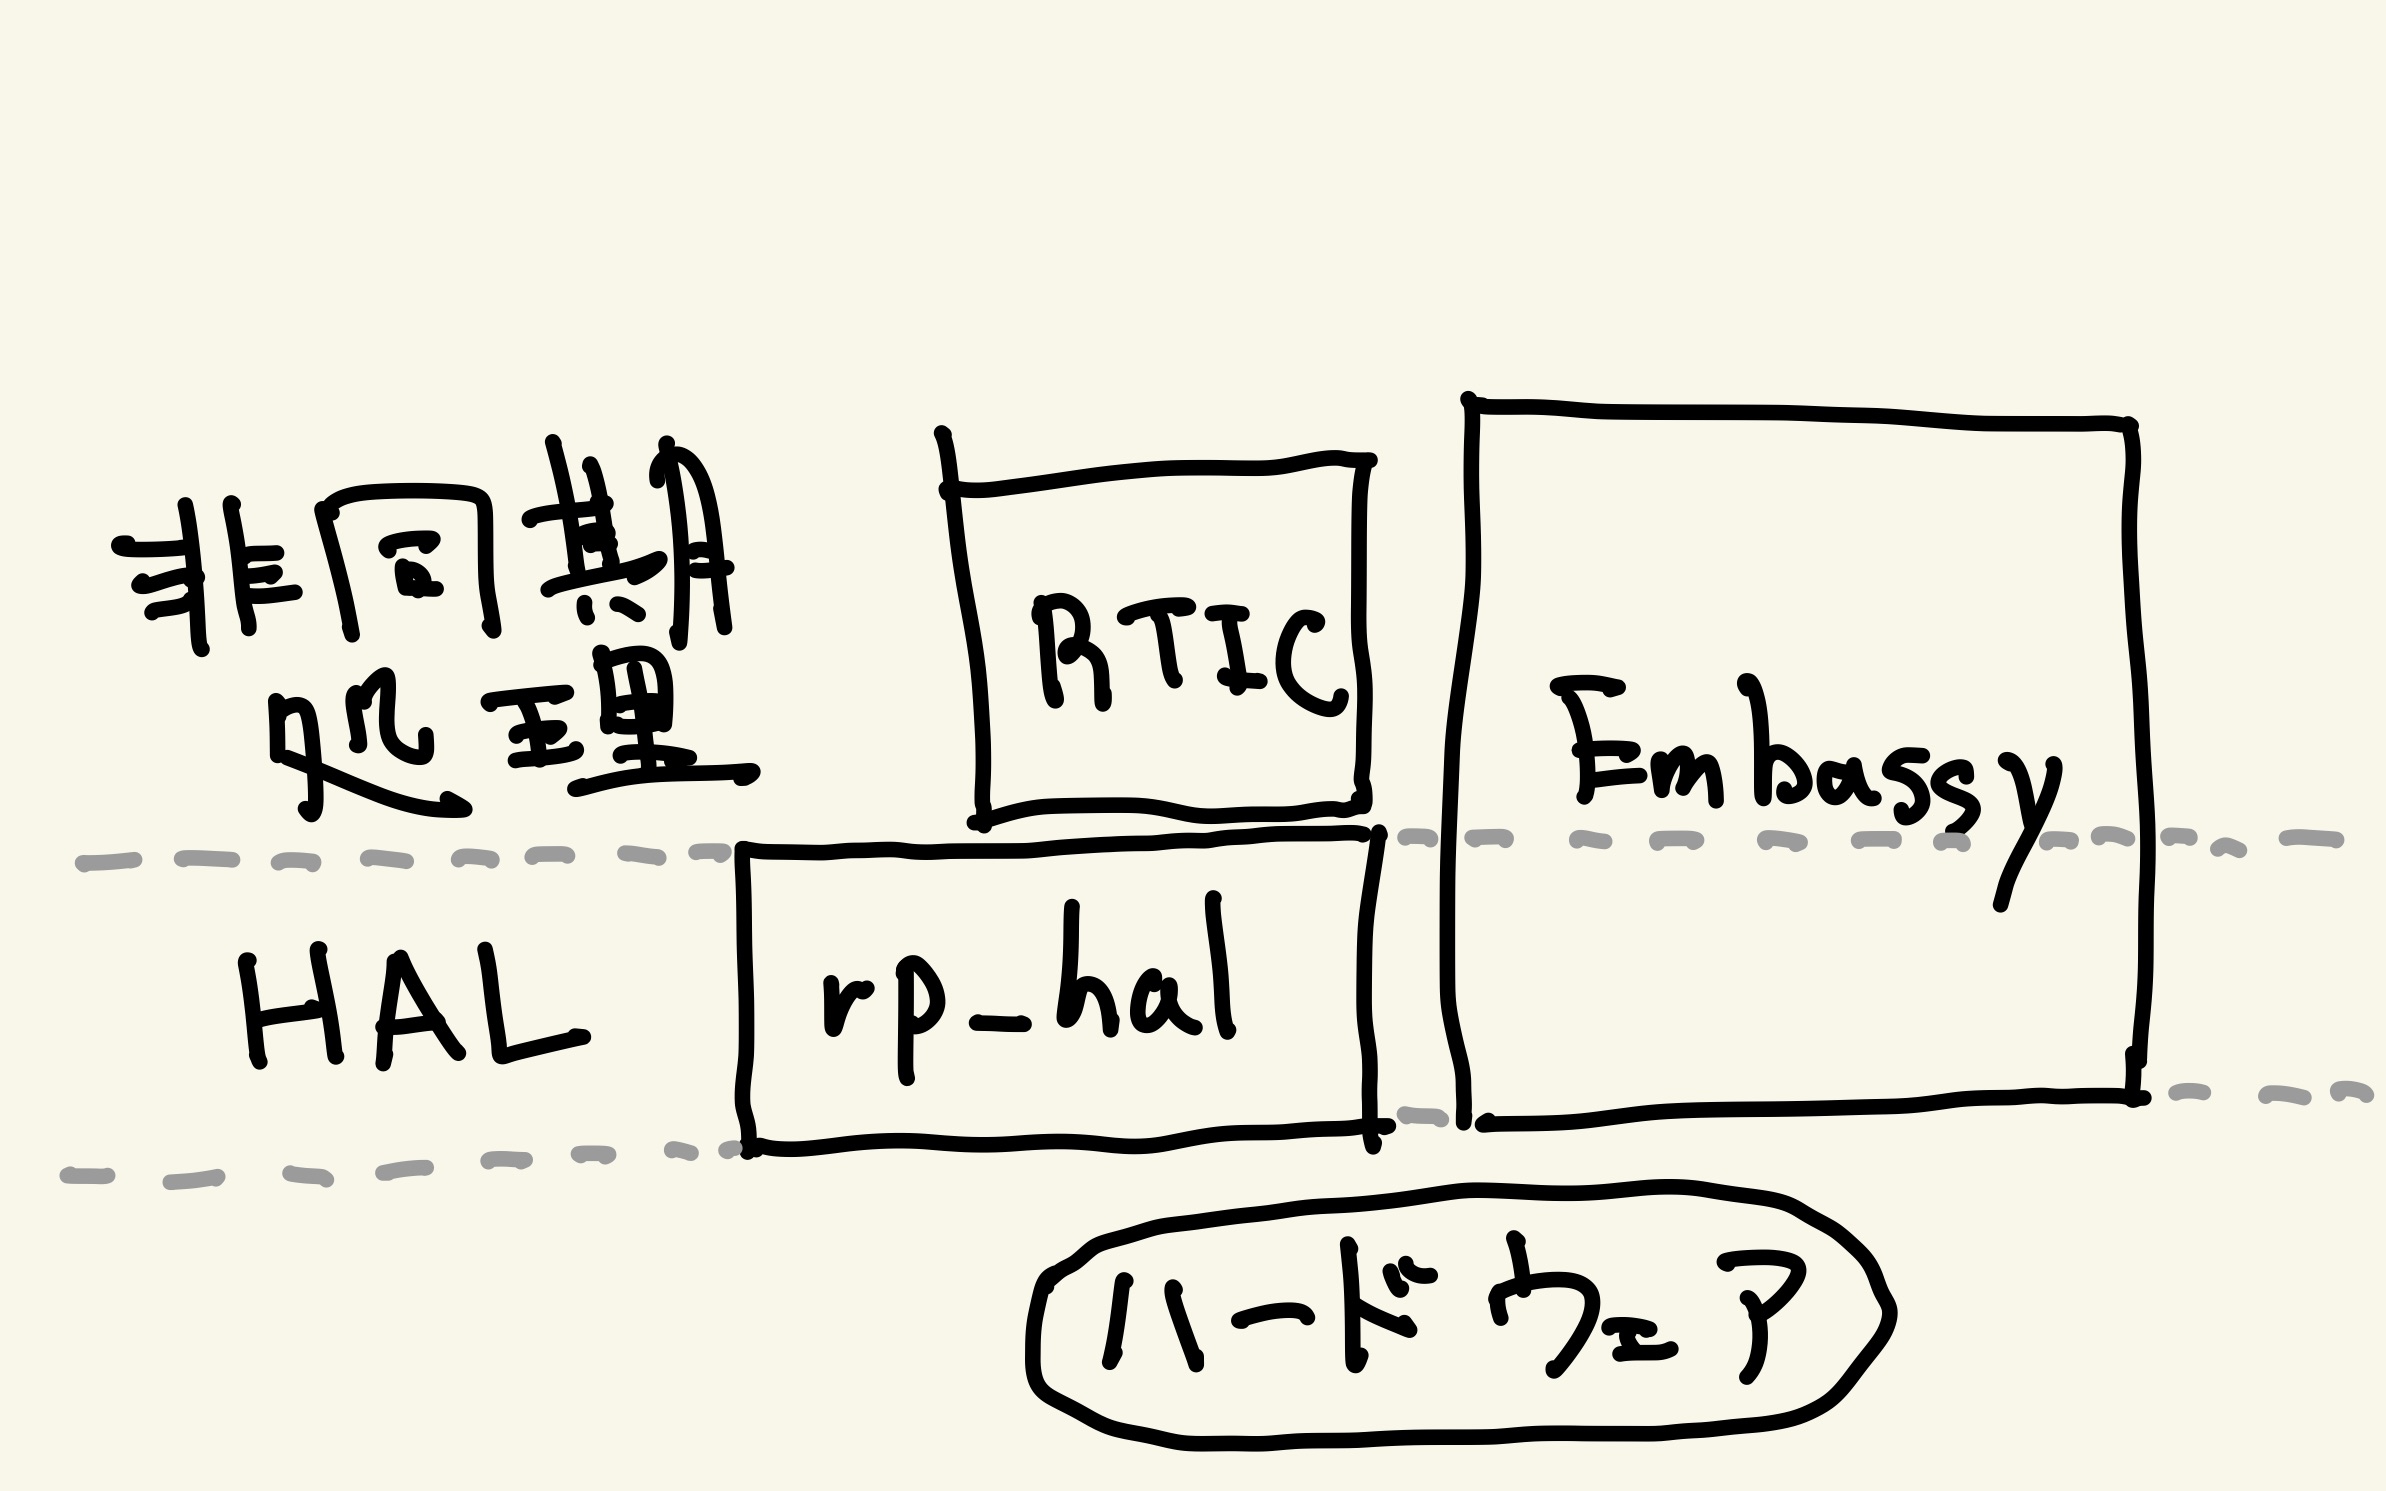 非同期
処理
RTIC
Embassy
HAL
rp_hal
ハードウェア